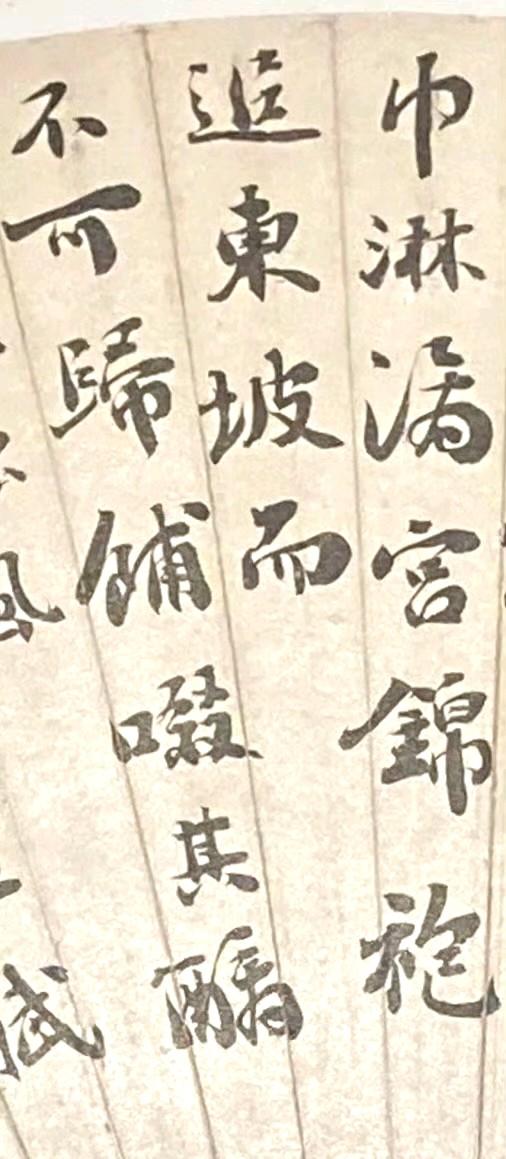 巾淋漓宮錦袍
追東坡而
不可歸餔啜其醨
風賦